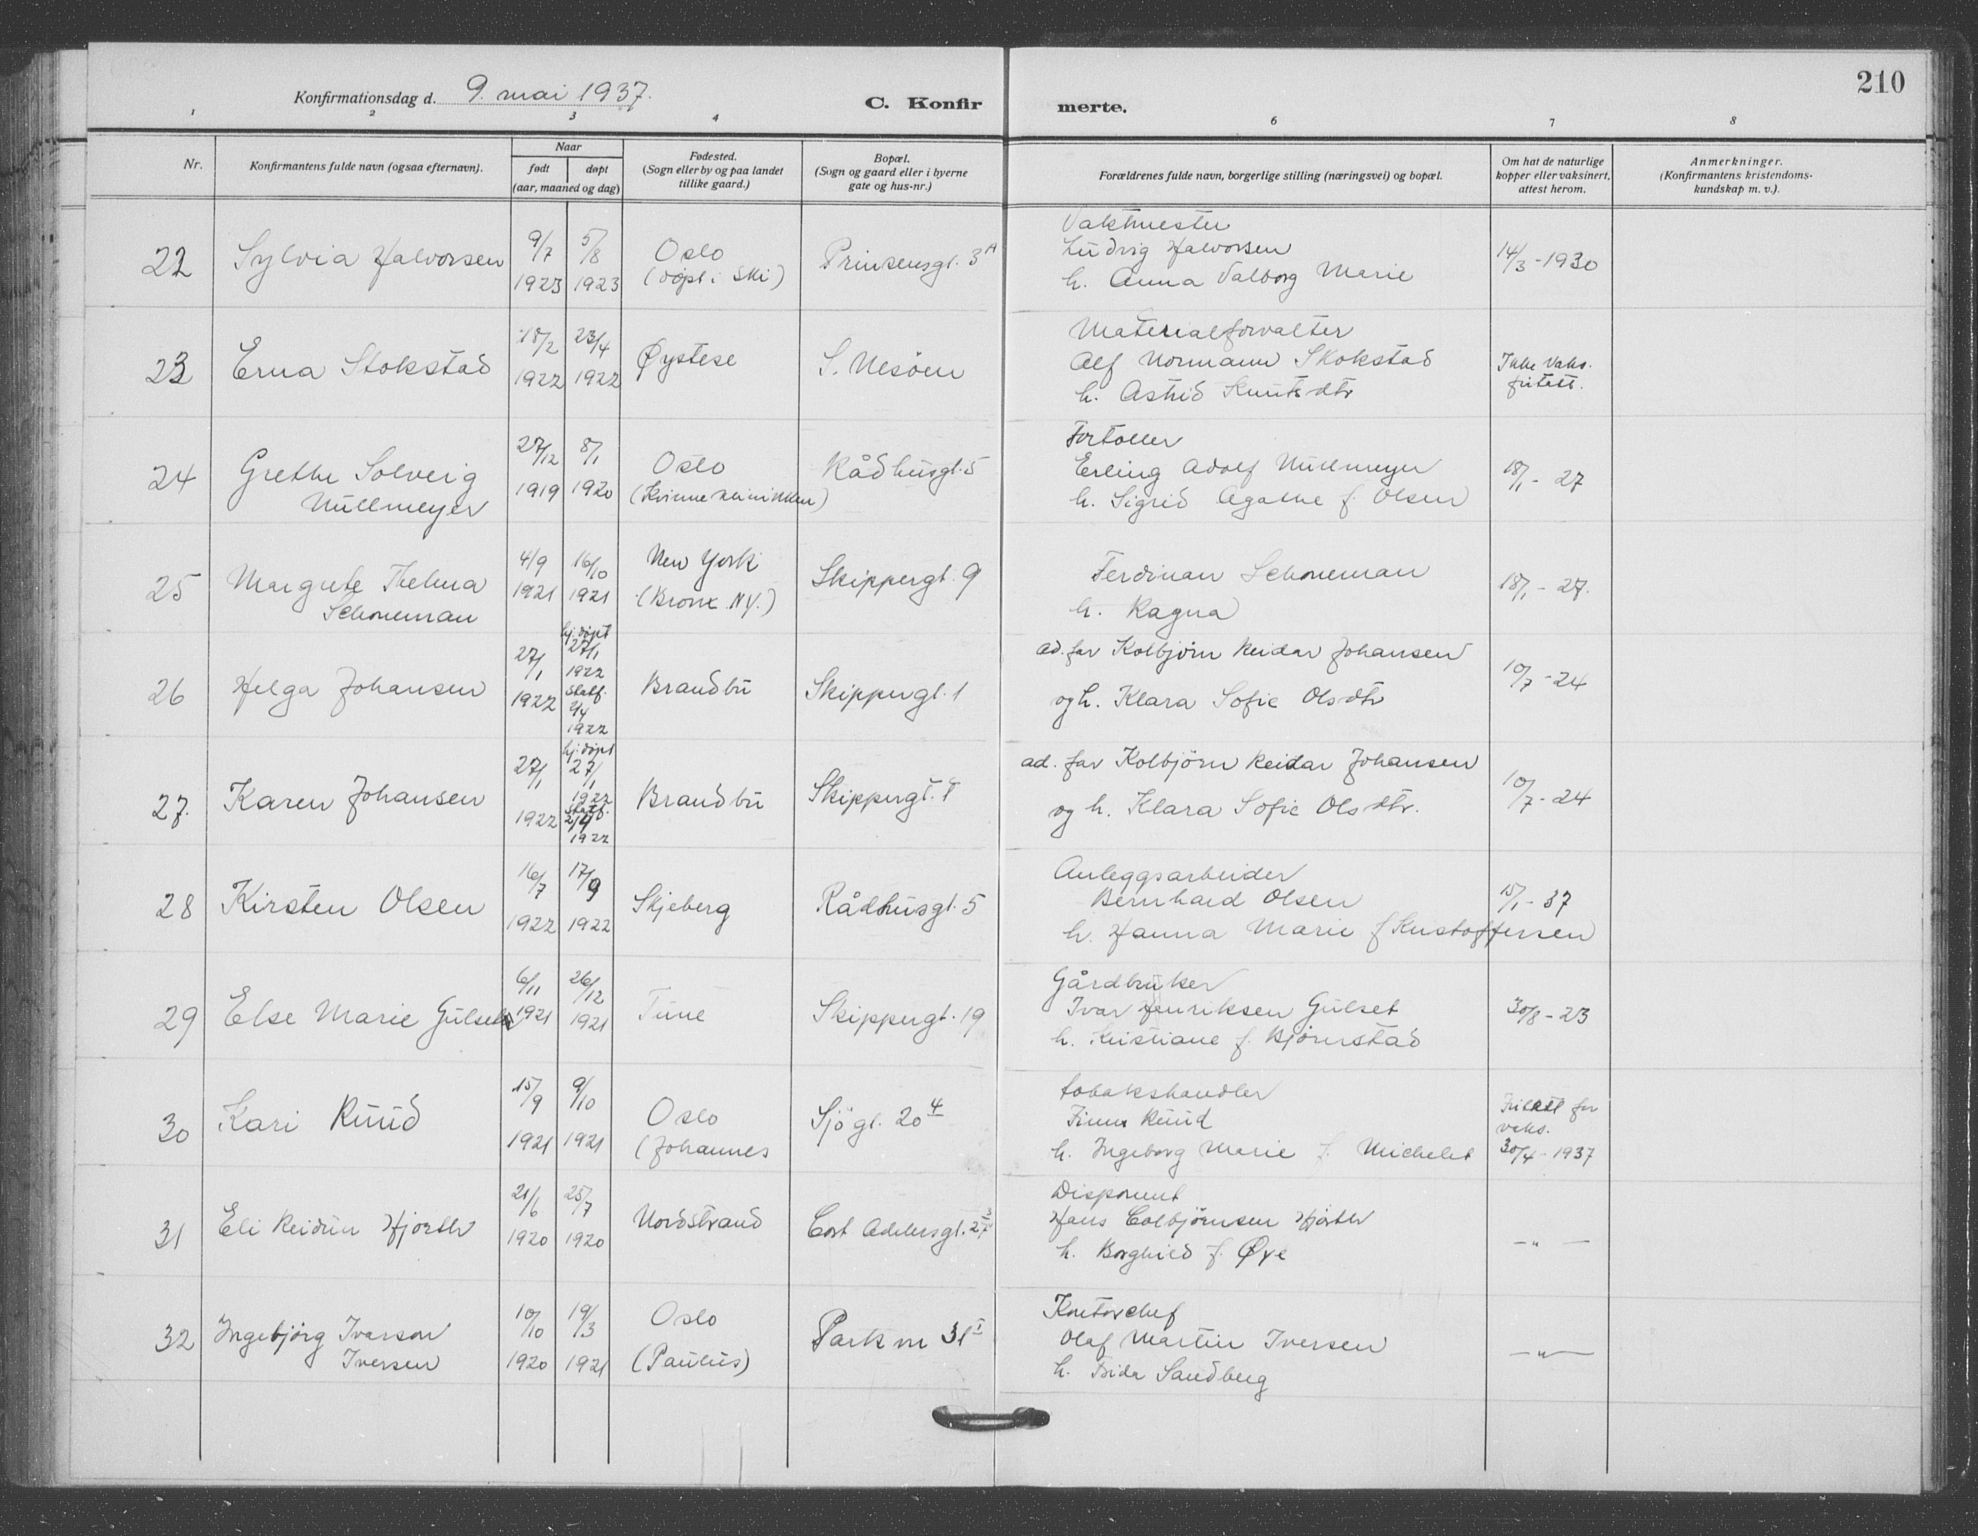 210
Konfirmationsdag d. 9. mai 1937.
C. Konfirmerte.
1 2 3 4 6 7 8
Nr.
Konfirmantens fulde navn (ogsaa efternavn).
Naar
født døpt
(aar, maaned og dag)
Fødested.
(Sogn eller by og paa landet
tillike gaard.)
Bopæl.
(Sogn og gaard eller i byerne
gate og hus-nr.)
Forældrenes fulde navn, borgerlige stilling (næringsvei) og bopæl.
Om hat de naturlige
kopper eller vaksinert,
attest herom.
Anmerkninger.
(Konfirmantens kristendoms-
kundskap m. v.).
22 Sylvia Halvorsen
9/7 1923
5/8 1923
Oslo
(døpt i Ski)
Prinsensgt. 3A
Vaktmester
Ludvig Halvorsen
h. Anna Valborg Marie
14/3-1930
23 Erna Stokstad
18/2 1922
23/4 1922
Øystese
S. Nesøen
Materialforvalter
Alf Normann Skokstad
h. Astrid Knutsdtr
Ikke vaks.
fritatt.
24 Grethe Solveig
Nullmeyer
27/12 1919
8/1 1920
Oslo
(Kvinneklinikken)
Rådhusgt. 5
Fortoller
Erling Adolf Nullmeyer
h. Sigrid Agathe f. Olsen
18/1 - 27
25 Margrete Thelma
Schoneman
4/9 1921
16/10 1921
New York
(Bronx N.Y.)
Skippergt. 9
Ferdinan Schoneman
h. Ragna
18/1 - 27.
26 Helga Johansen
27/1 1922
hj. døpt
27/1
1922
statf.
2/4
1922
Brandbu
Skippergt. 1
ad. far Kolbjørn Reidar Johansen
og h. Klara Sofie Olsdtr
10/7 - 24
27. Karen Johansen
27/1 1922
hj. døpt
27/1
1922
statf.
2/4
1922
Brandbu
Skippergt. 1
ad. far Kolbjørn Reidar Johansen
og h. Klara Sofie Olsdtr.
10/7 - 24
28 Kirsten Olsen
16/7 1922
17/9 1922
Skjeberg
Rådhusgt. 5
Anleggsarbeider
Bernhard Olsen
h. Hanna Marie f Kristoffersen
15/1 - 37
29 Else Marie Gulset
6/11 1921
26/12 1921
Tune
Skippergt. 19
Gårdbruker
Ivar Henriksen Gulset
h. Kristiane f. Bjørnstad
30/8 - 23
30 Kari Ruud
15/9 1921
9/10 1921
Oslo
(Johannes
Sjøgt. 20 4
tobakshandler
Finn Ruud
h. Ingeborg Marie f. Michelet
Fritatt for
vaks.
30/4 - 1937
31 Eli Reidun Hjorth
21/6 1920
25/7 1920
Nordstrand
Cort Adelersgt. 27
Disponent
Hans Colbjørnsen Hjorth
h. Borghild f. Øye
— " —
32 Ingebjørg Ivarson
Iversen
10/10 1920
19/3 1921
Oslo
(Paulus)
Parkv. 31 I
Kontorchef
Olaf Martin Iversen
h. Sandberg
— " —